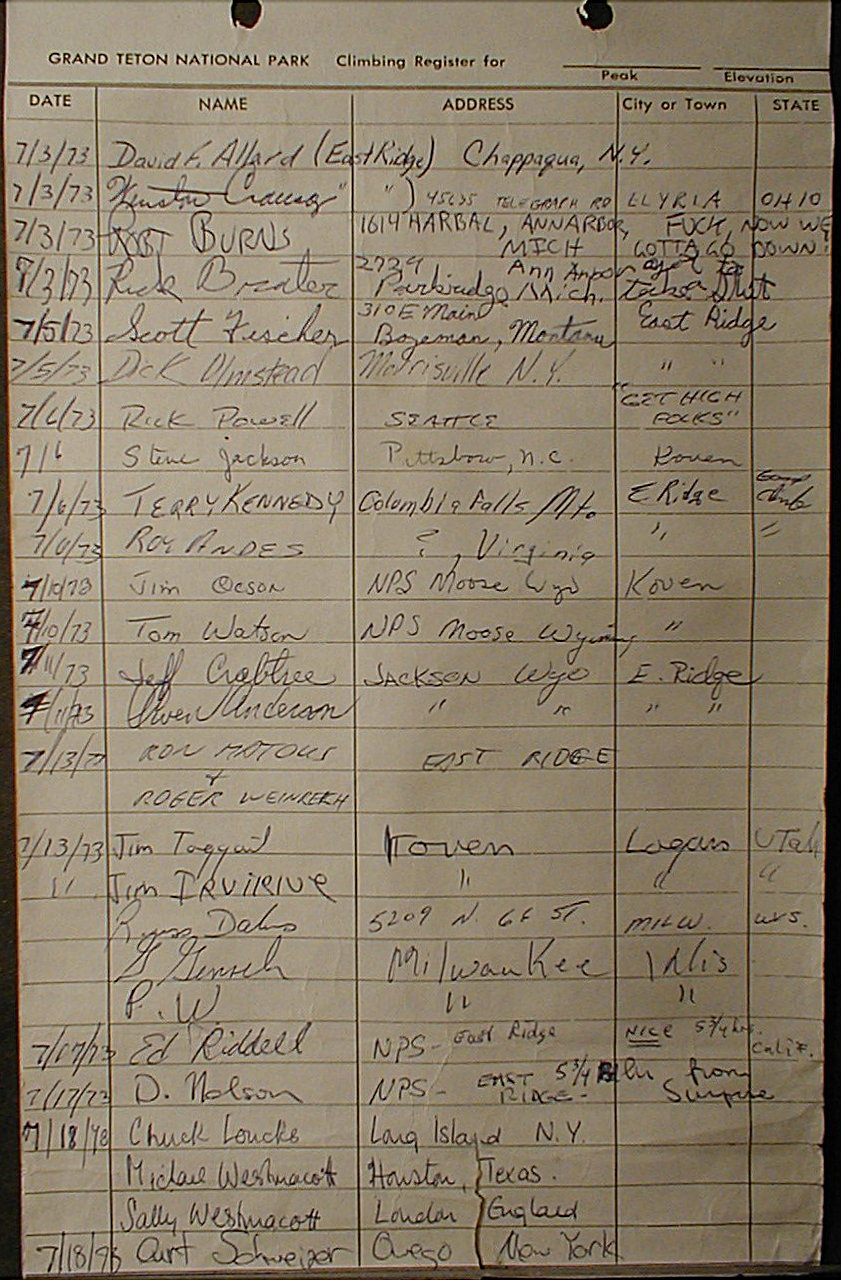 GRAND TETON NATIONAL PARK Climbing Register for
Peak Elevation
DATE NAME ADDRESS City or Town STATE
7/3/73 David F. Allard (East Ridge) Chappaqua, N.Y.
7/3/73 " " ) TELEGRAPH RD ELYRIA OHIO
7/3/73 BURNS 1614 HARBAL, ANN ARBOR, MICH FUCK, NOW WE GOTTA GO DOWN!
/3/73 Rick 2739 Parkridge Ann Arbor Mich.
7/5/73 Scott Fischer 310 E Main Bozeman, Montana East Ridge
7/5/73 Dick Olmstead Morrisville N.Y. " "
7/6/73 Rick Powell SEATTLE "GET HIGH FOLKS"
7/6 Steve Jackson Pittsboro, n.c. Koven
7/6/73 TERRY KENNEDY Columbia Falls Mt. E Ridge climb
7/6/73 ROY ANDES ?, Virginia " "
7/10/73 Jim Olson NPS Moose Wyo Koven
7/10/73 Tom Watson NPS Moose Wyoming "
7/11/73 Jeff Crabtree JACKSON Wyo E. Ridge
7/11/73 Owen Anderson " " " "
7/13/7 RON MATOUS EAST RIDGE
+
ROGER
7/13/73 Jim Koven Logan UTah
" Jim " " "
Russ 5209 N. ST. MILW. WIS.
G Milwaukee Wis
P. W " "
7/17/73 Ed Riddell NPS- East Ridge NICE 5 3/4 hrs. Calif.
7/17/73 D. Nelson NPS- EAST RIDGE- 5 3/4 from
7/18/7 Chuck Loucks Long Island N.Y.
Michael Westmacott Houston, Texas.
Sally Westmacott London England
7/18/73 Curt Schweizer New York